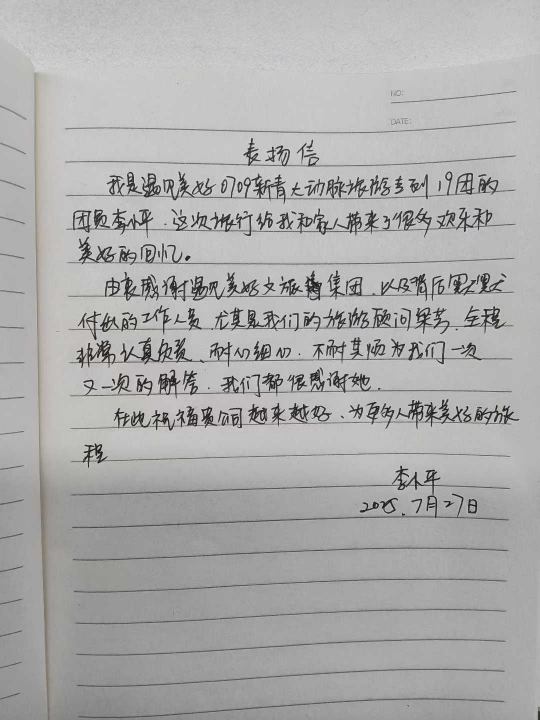 NO:
DATE:
表扬信
我是遇见美好0709新青大动脉旅游专列19团的
团员李小平.这次旅行给我和家人带来了很多欢乐和
美好的回忆。
由衷感谢遇见美好文旅集团.以及背后默默
付出的工作人员.尤其是我们的旅游顾问 全程
非常认真负责.耐心细心.不耐其烦为我们一次
又一次的解答.我们都很感谢她.
在此祝福贵公司越来越好.为更多人带来美好的旅
程
李小平
2025.7月27日